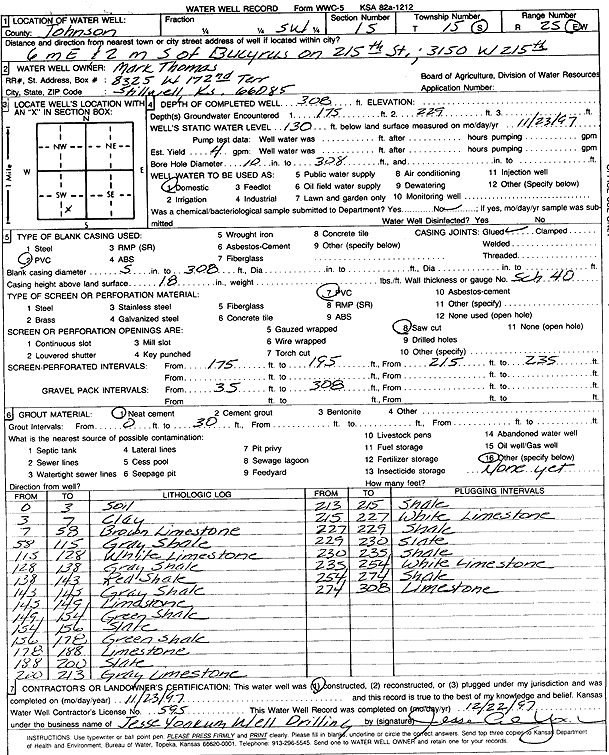 WATER WELL RECORD Form WWC-5 KSA 82a-1212
1 LOCATION OF WATER WELL: Fraction Section Number Township Number Range Number
County: Johnson ¼ ¼ SW ¼ 15 T 15 S R 25 E W
Distance and direction from nearest town or city street address of well if located within city?
6 m E ½ m S of Bucyrus on 215th St, ; 3150 W 215th
2 WATER WELL OWNER: Mark Thomas
RR#, St. Address, Box # : 8325 W 172nd Terr Board of Agriculture, Division of Water Resources
City, State, ZIP Code : Stilwell Ks. 66085 Application Number:
3 LOCATE WELL'S LOCATION WITH AN "X" IN SECTION BOX:
N
NW NE
W E
SW SE
X
S
1 Mile
4 DEPTH OF COMPLETED WELL 308 ft. ELEVATION:
Depth(s) Groundwater Encountered 1. 175 ft. 2. 229 ft. 3. ft.
WELL'S STATIC WATER LEVEL 130 ft. below land surface measured on mo/day/yr 11/23/97
Pump test data: Well water was ft. after hours pumping gpm
Est. Yield 4 gpm: Well water was ft. after hours pumping gpm
Bore Hole Diameter 10 in. to 308 ft., and in. to ft.
WELL WATER TO BE USED AS: 5 Public water supply 8 Air conditioning 11 Injection well
1 Domestic 3 Feedlot 6 Oil field water supply 9 Dewatering 12 Other (Specify below)
2 Irrigation 4 Industrial 7 Lawn and garden only 10 Monitoring well
Was a chemical/bacteriological sample submitted to Department? Yes No ✓ ; If yes, mo/day/yr sample was submitted Water Well Disinfected? Yes No
5 TYPE OF BLANK CASING USED: 5 Wrought iron 8 Concrete tile CASING JOINTS: Glued ✓ Clamped
1 Steel 3 RMP (SR) 6 Asbestos-Cement 9 Other (specify below) Welded
2 PVC 4 ABS 7 Fiberglass Threaded
Blank casing diameter 5 in. to 308 ft., Dia in. to ft., Dia in. to ft.
Casing height above land surface 18 in., weight lbs./ft. Wall thickness or gauge No. Sch 40
TYPE OF SCREEN OR PERFORATION MATERIAL: 7 PVC 10 Asbestos-cement
1 Steel 3 Stainless steel 5 Fiberglass 8 RMP (SR) 11 Other (specify)
2 Brass 4 Galvanized steel 6 Concrete tile 9 ABS 12 None used (open hole)
SCREEN OR PERFORATION OPENINGS ARE: 5 Gauzed wrapped 8 Saw cut 11 None (open hole)
1 Continuous slot 3 Mill slot 6 Wire wrapped 9 Drilled holes
2 Louvered shutter 4 Key punched 7 Torch cut 10 Other (specify)
SCREEN-PERFORATED INTERVALS: From 175 ft. to 195 ft., From 215 ft. to 235 ft.
From ft. to ft., From ft. to ft.
GRAVEL PACK INTERVALS: From 35 ft. to 308 ft., From ft. to ft.
From ft. to ft., From ft. to ft.
6 GROUT MATERIAL: 1 Neat cement 2 Cement grout 3 Bentonite 4 Other
Grout Intervals: From 0 ft. to 30 ft., From ft. to ft., From ft. to ft.
What is the nearest source of possible contamination: 10 Livestock pens 14 Abandoned water well
1 Septic tank 4 Lateral lines 7 Pit privy 11 Fuel storage 15 Oil well/Gas well
2 Sewer lines 5 Cess pool 8 Sewage lagoon 12 Fertilizer storage 16 Other (specify below)
3 Watertight sewer lines 6 Seepage pit 9 Feedyard 13 Insecticide storage None yet
Direction from well? How many feet?
FROM TO LITHOLOGIC LOG FROM TO PLUGGING INTERVALS
0 3 Soil 213 215 Shale
3 7 Clay 215 227 White Limestone
7 58 Brown Limestone 227 229 Shale
58 115 Gray Shale 229 230 Slate
115 128 White Limestone 230 235 Shale
128 138 Gray Shale 235 254 White Limestone
138 143 Red Shale 254 274 Shale
143 145 Gray Shale 274 308 Limestone
145 149 Limestone
149 154 Green Shale
154 156 Slate
156 178 Green Shale
178 188 Limestone
188 200 Slate
200 213 Gray Limestone
7 CONTRACTOR'S OR LANDOWNER'S CERTIFICATION: This water well was (1) constructed, (2) reconstructed, or (3) plugged under my jurisdiction and was
completed on (mo/day/year) 11/23/97 and this record is true to the best of my knowledge and belief. Kansas
Water Well Contractor's License No. 595 This Water Well Record was completed on (mo/day/yr) 12/22/97
under the business name of Jesse Yoakum Well Drilling by (signature)
INSTRUCTIONS: Use typewriter or ball point pen. PLEASE PRESS FIRMLY and PRINT clearly. Please fill in blanks, underline or circle the correct answers. Send top three copies to Kansas Department
of Health and Environment, Bureau of Water, Topeka, Kansas 66620-0001. Telephone: 913-296-5545. Send one to WATER WELL OWNER and retain one for your records.